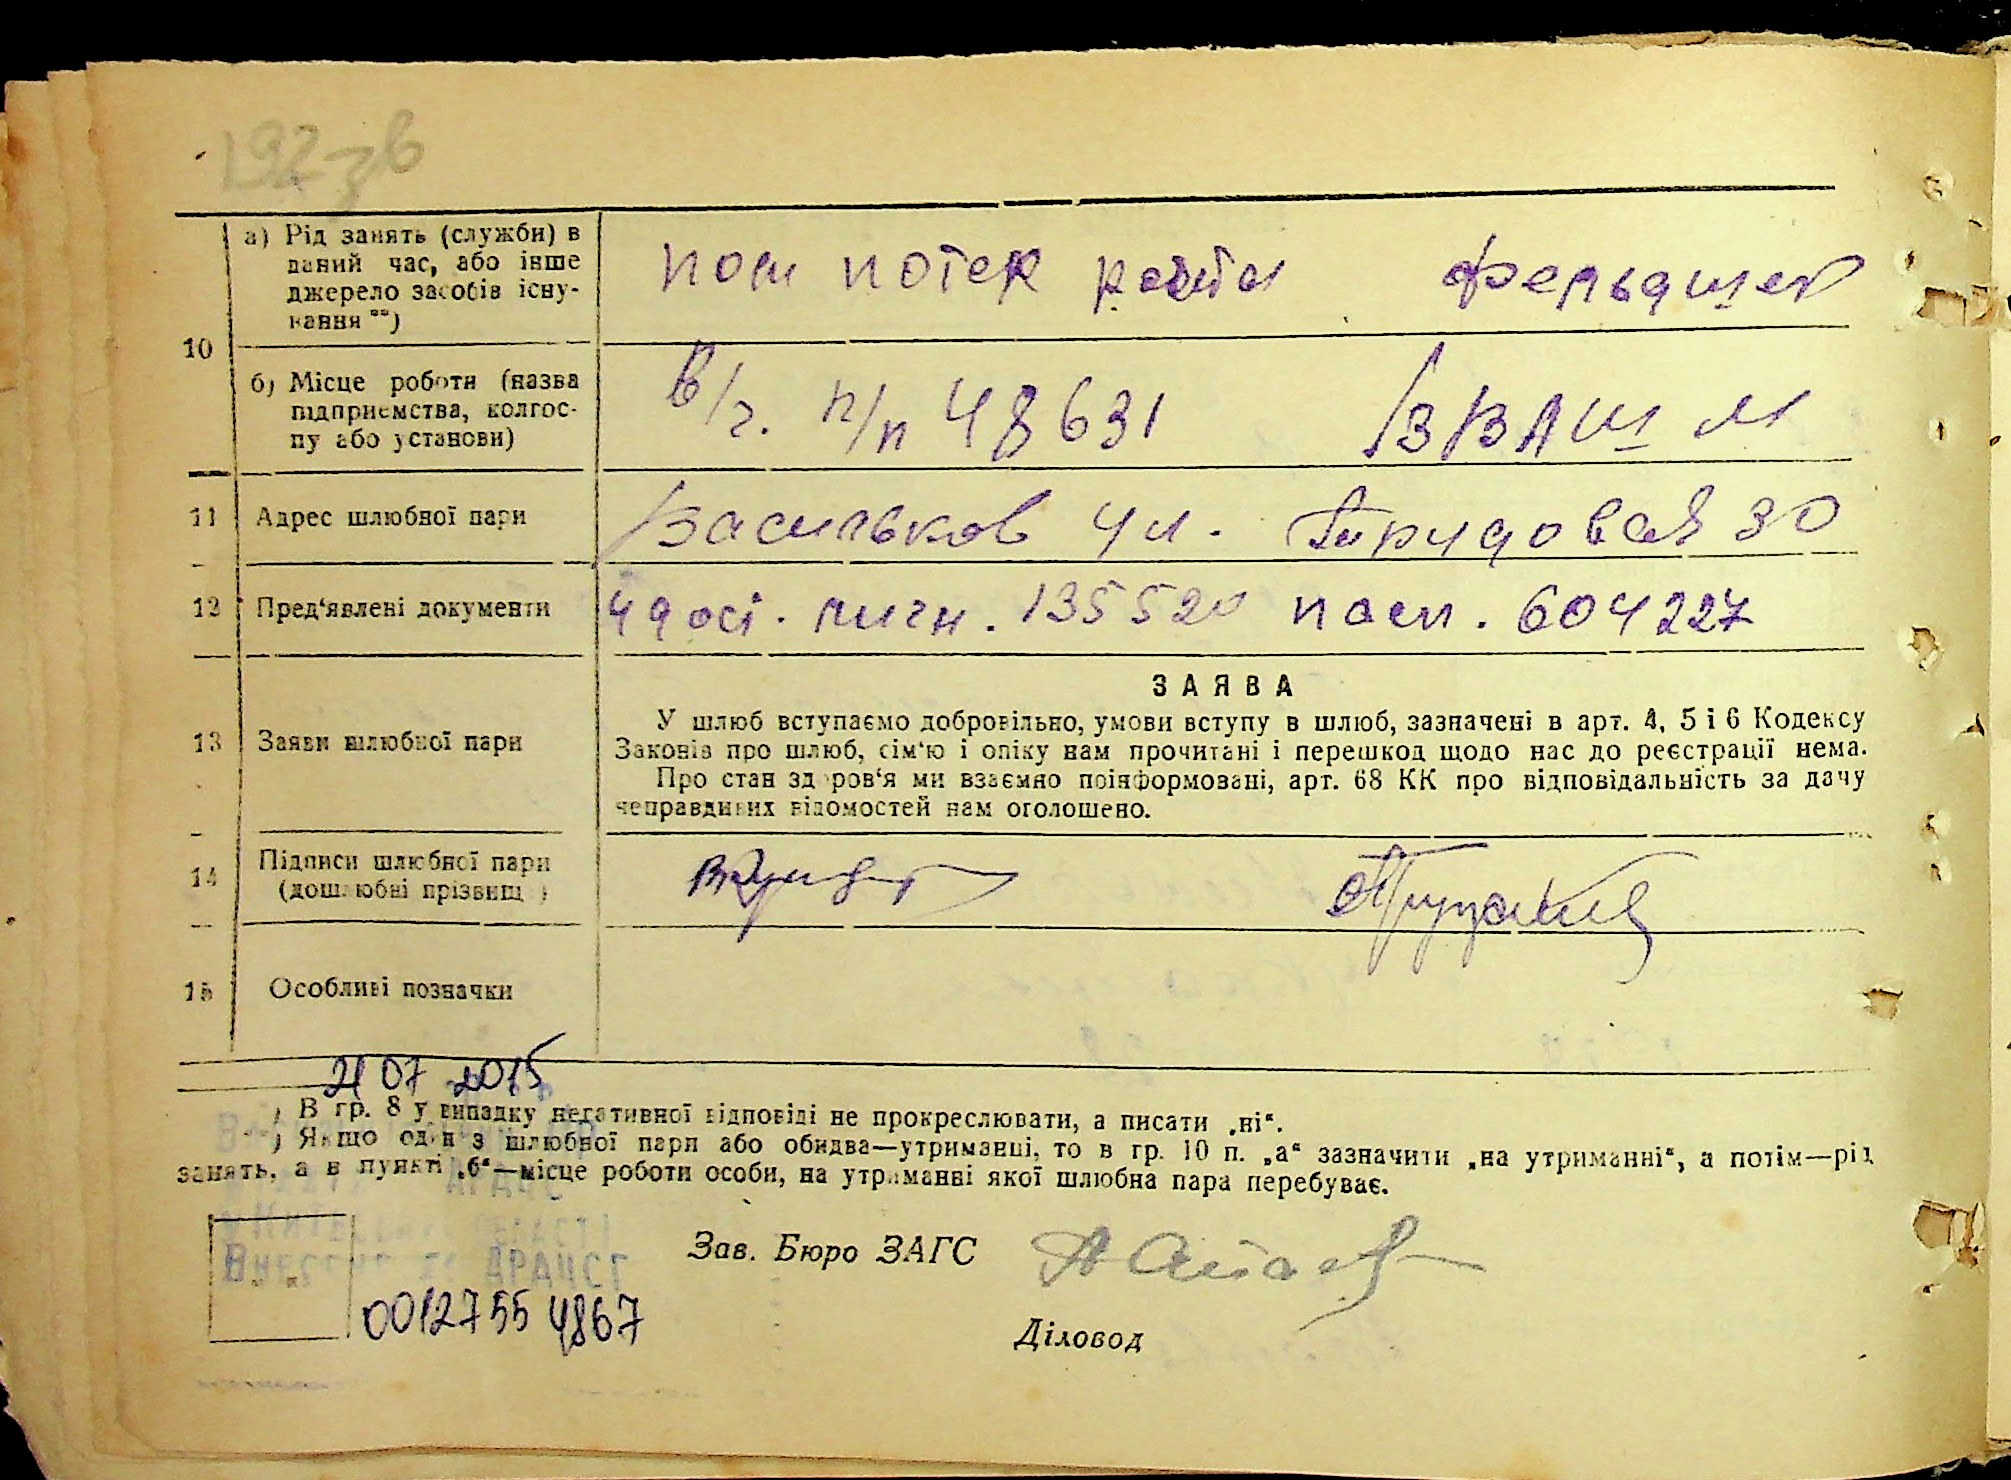 192 зв
а) Рід занять (служби) в
даний час, або інше
джерело засобів існу-
вання **)
пом фельдшер
10
б) Місце роботи (назва
підприємства, колгос-
пу або установи)
в/ч. п/п 48631 ВВАШМ
11 Адрес шлюбної пари Васильков ул. Трудовая 30
12 Пред‘явлені документи удос. личн. 135520 пасп. 604227
ЗАЯВА
13 Заяви шлюбної пари
У шлюб вступаємо добровільно, умови вступу в шлюб, зазначені в арт. 4, 5 і 6 Кодексу
Законів про шлюб, сім‘ю і опіку нам прочитані і перешкод щодо нас до реєстрації нема.
Про стан здоров‘я ми взаємно поінформовані, арт. 68 КК про відповідальність за дачу
неправдивих відомостей нам оголошено.
14 Підписи шлюбної пари
(дошлюбні прізвищ )
15 Особливі позначки
21 07 2015
) В гр. 8 у випадку негативної відповіді не прокреслювати, а писати „ні“.
) Якщо один з шлюбної пари або обидва—утриманці, то в гр. 10 п. „а“ зазначити „на утриманні“, а потім—рід
занять, а в пункті „б“—місце роботи особи, на утриманні якої шлюбна пара перебуває.
Зав. Бюро ЗАГС
Внесено до ДРАЦСГ
00127554867
Діловод